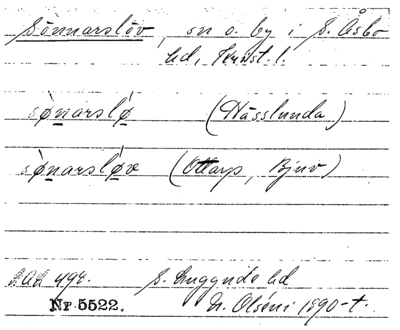 Sönnarslöv, sn o. by i S. Åsbo
hd, Krist. l.
sø̀narslø (Hässlunda)
sø̀narsløv (Ottarp, Bjuv)
S. Luggude hd
Nr 5522. N. Olséni 1890-t.